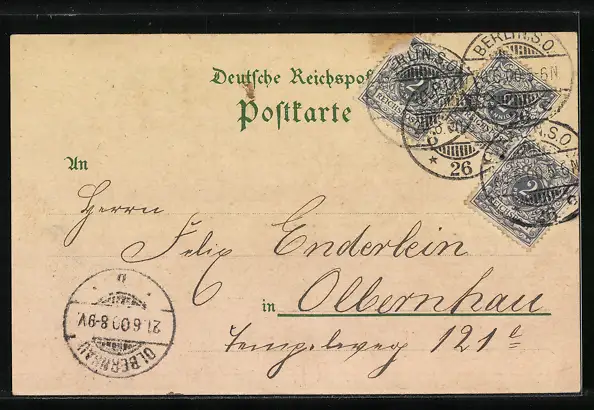 Deutsche Reichspost
Postkarte
BERLIN.S.O.
26
An
Herrn
Felix Enderlein
in Olbernhau
Tempelweg 121e
OLBERNHAU
21.6.00.8-9V.